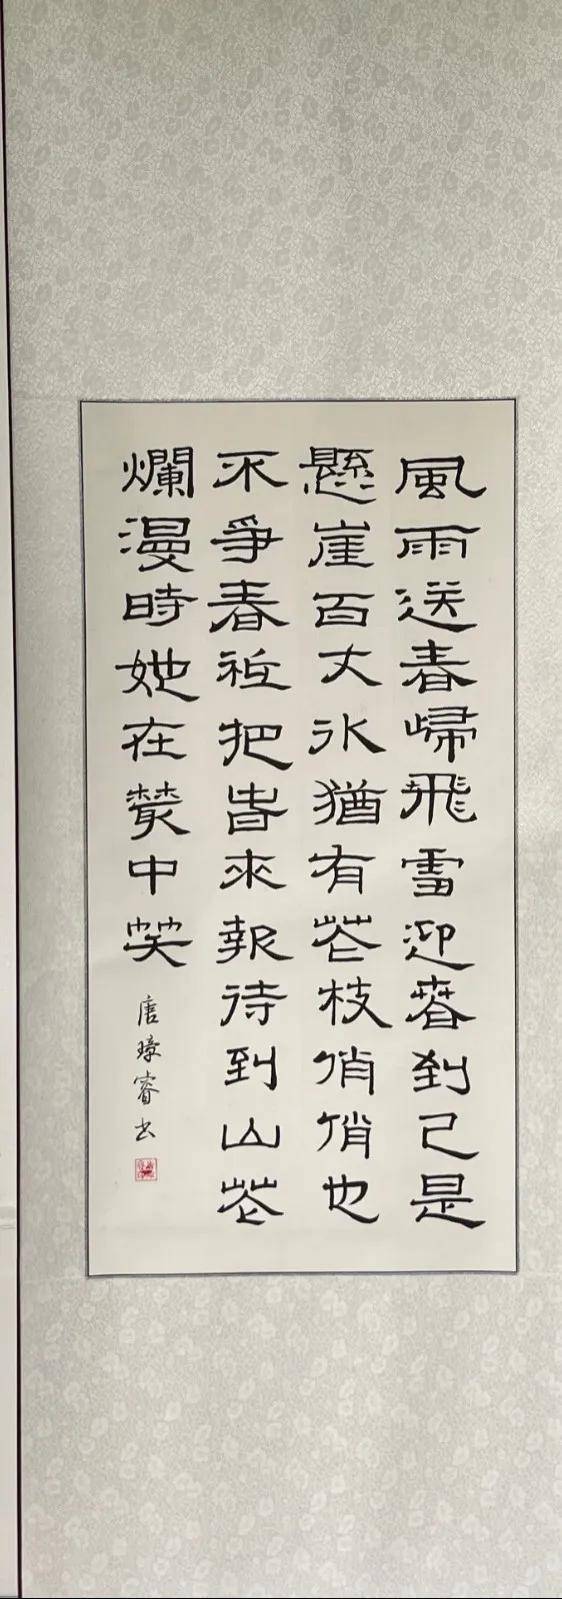 風雨送春歸飛雪迎春到已是
懸崖百丈冰猶有花枝俏俏也
不爭春祗把春來報待到山花
爛漫時她在叢中笑
唐璋睿书